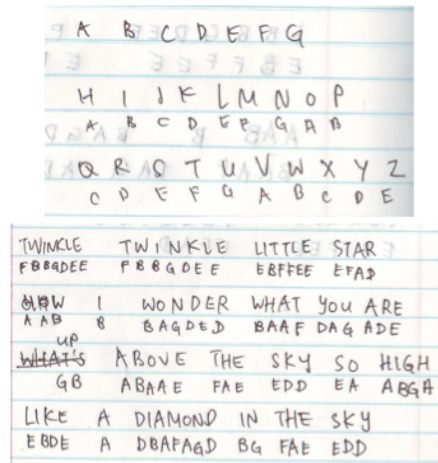 A B C D E F G
H I J K L M N O P
A B C D E F G A B
Q R S T U V W X Y Z
C D E F G A B C D E
TWINKLE TWINKLE LITTLE STAR
FBBGDEE FBBGDEE EBFFEE EFAD
HOW I WONDER WHAT YOU ARE
AAB B BAGDED BAAF DAG ADE
UP
WHAT'S ABOVE THE SKY SO HIGH
GB ABAAE FAE EDD EA ABGA
LIKE A DIAMOND IN THE SKY
EBDE A DBAFAGD BG FAE EDD